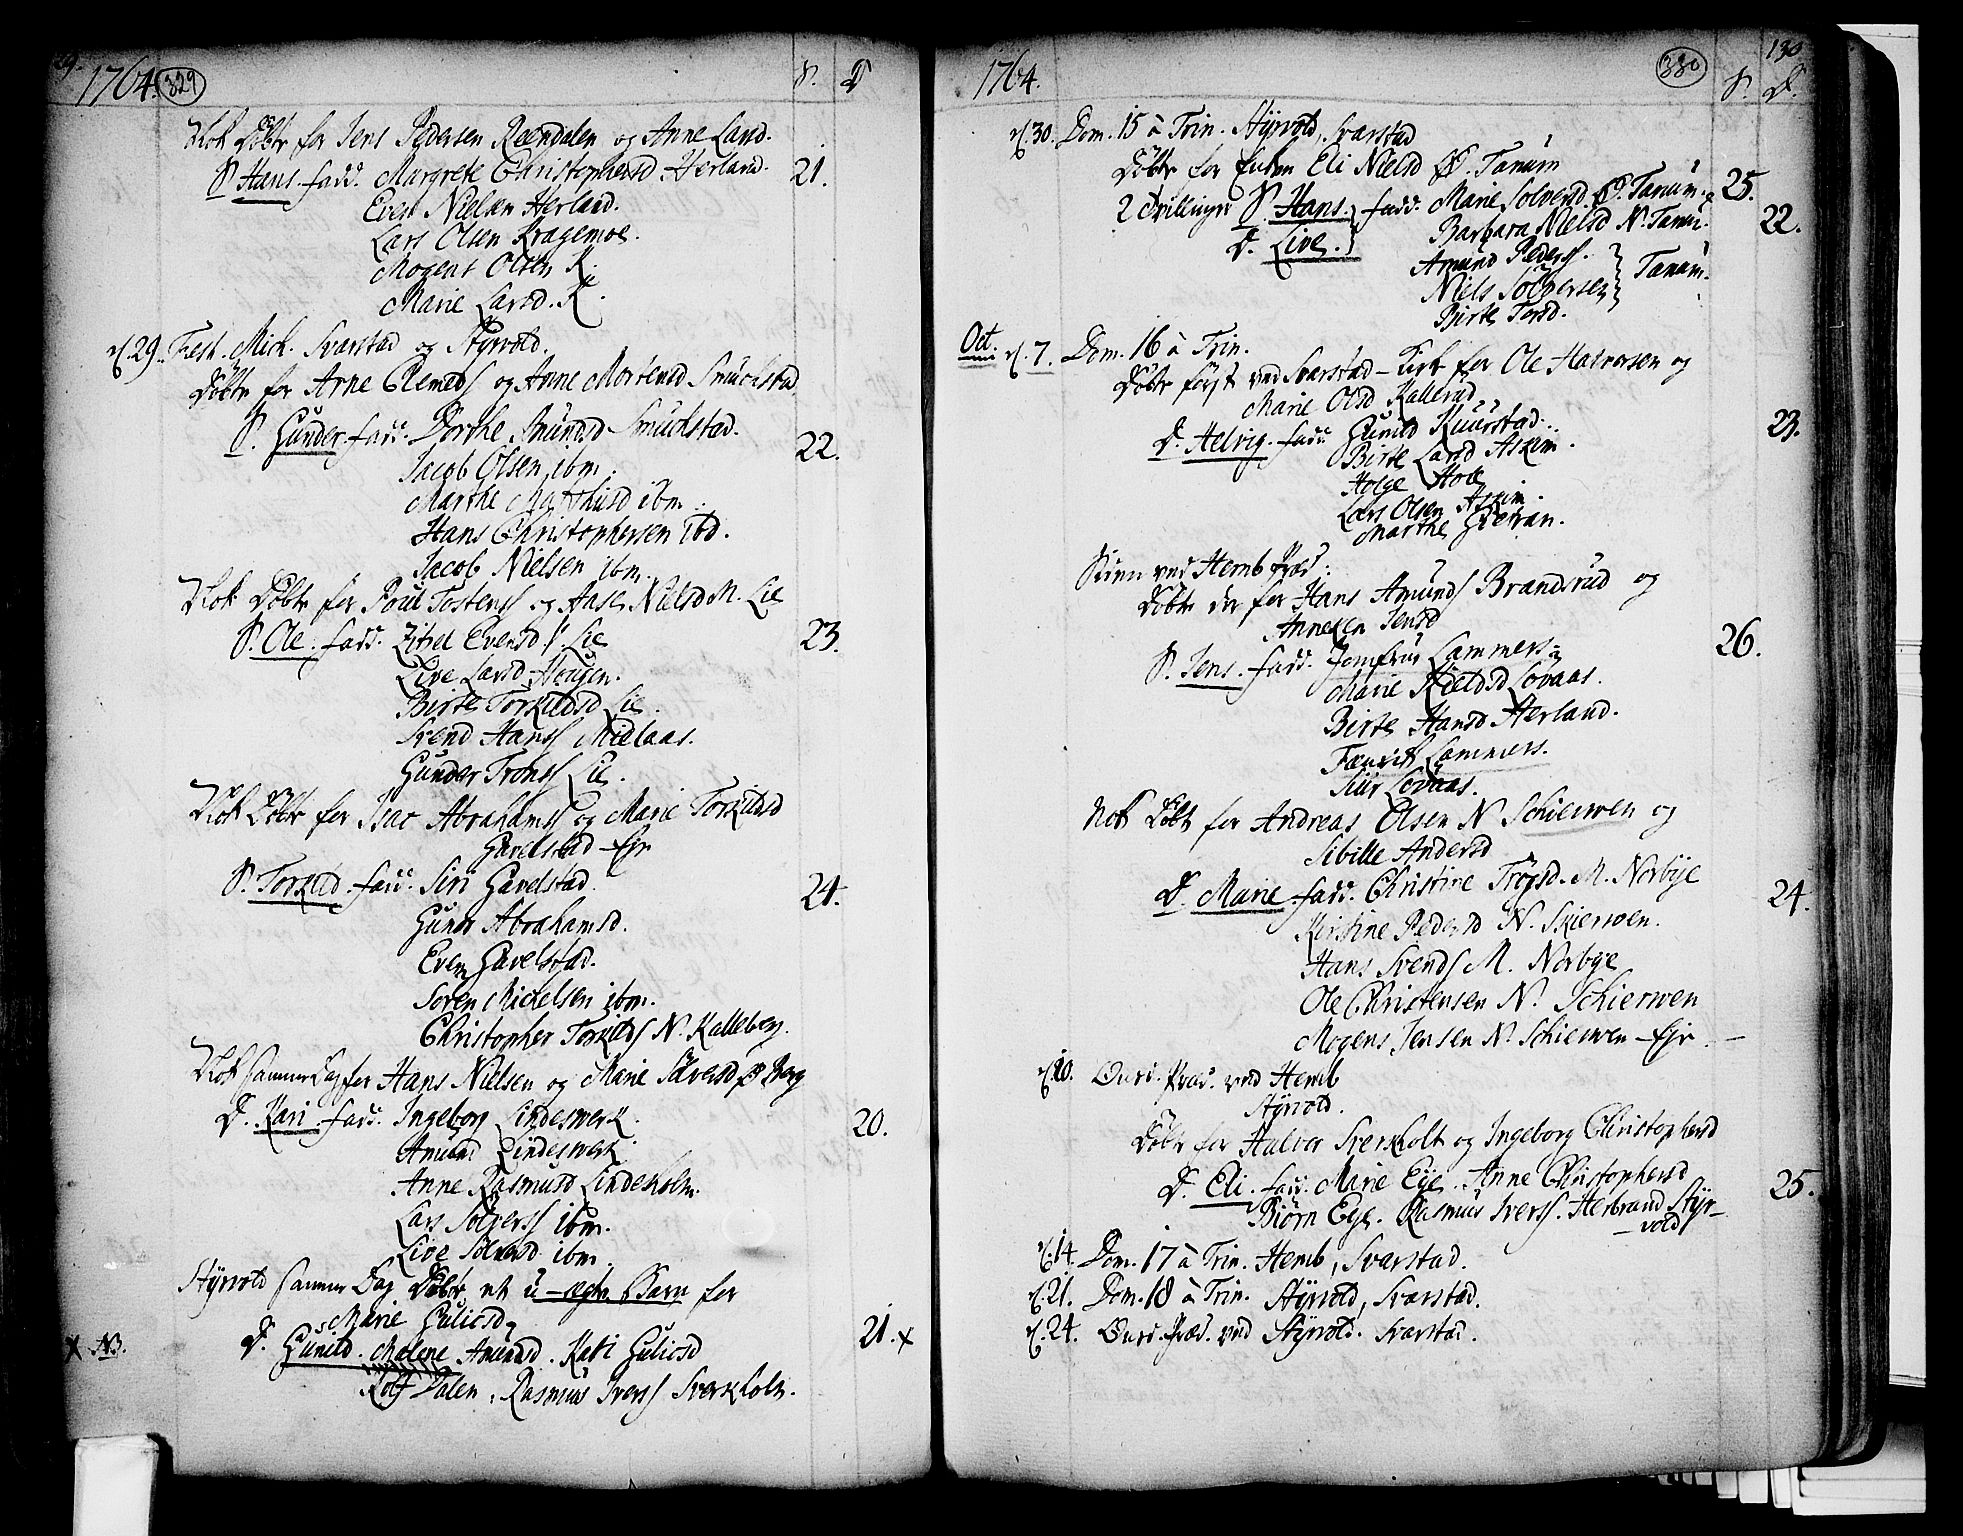 1764. 329 S. D
Nok Döbte for Jens Pedersen Reendalen og Anne Larsd.
S. Hans. fadd. Margrete Christophersd. Herland. 21.
Even Nielsen Herland.
Lars Olsen Kragemoe.
Mogens Olsen K.
Marie Larsd. K.
d. 29. Fest. Mich. Svarstad og Styrvold.
Döbte for Arne Clemeds og Anne Mortensd Smuchstad
S. Gunder. fadd. Dorthe Amunds Smuchstad. 22.
Jacob Olsen, ibm.
Marthe ibm.
Hans Christophersen ibd.
Jacob Nielsen ibm.
Nok Döbte for Poul Tostenss og Aase Nielsd M. Lie
S. Ole. fadd. Zibel Evensd S. Lie 23.
Live Larsd. Hougen.
Birte Torkildsd Lie.
Svend Hanss Mielaas.
Gunder Tronss Lie.
Nok Döbte for Isac Abrahamss og Marie Torkildsd
Gavelstad Ejr
S. Torkild. fadd. Siri Gavelstad. 24.
Guner Abrahamsd.
Even Gavelstad.
Soren Mickelsen ibm.
Christopher Torkilds N. Kalleberg.
Nok samme Dag for Hans Nielsen og Marie Sölversd Ø Berg
D. Kari. fadd. Ingeborg Lindesverk. 20.
Amund Lindesverk
Anne Rasmusd Lindeholm.
Lars Solverss ibm.
Live Solversd ibm.
Styrvold samme Dag Döbte et u-ægte Barn for
Marie Gulicsd
x NB. D. Gunild. Malene Amundsd. Kari Gulicsd 21. x
Rolf Dalen, Rasmus Iverss Sverkholt.
1764. 330 130
S. D.
d. 30. Dom. 15 à Trin. Styrvold, Svarstad
Döbte for Enken Eli Nielsd Ø. Tanum
2 Tvillinger S. Hans. fadd. Marie Solversd. Ø. Tanum. 25.
D. Live. Barbara Nielsd N. Tanum. 22.
Amund Pederss.
Niels Sölversen Tanum.
Birte Torsd.
Oct. d. 7. Dom. 16 à Trin.
Döbte först ved Svarstad-Kirk for Ole Halvorsen og
Marie Olsd Kallerud
D. Helvig. fadd. Gunild Kuurstad. 23.
Birte Larsd Askim.
Helge Hole
Lars Olsen Askim.
Marthe
Siden ved Hemb Præd.
Döbte der for Hans Amunds Brandsrud og
Anneken Jensd
S. Jens. fadd. Jomfrue Lammers 26.
Marie Kieldsd Lovaas.
Birte Hansd Herland.
Lammers.
Siur Lovaas.
Nok Döbt for Andreas Olsen N Schierven og
Sibille Andersd
D. Marie. fadd. Christine Trogsd. M. Norbye 24.
Kirstine Pedersd N. Skierven.
Hans Svends M. Norbye
Ole Christensen N. Schierwen
Mogens Jensen N. Schierwen Ejr.
d. 10. Onsd. Præd. ved Hemb
Styrvold.
Döbte for Halvor Sverkholt og Ingeborg Christophersd
D. Eli. fadd. Marie Ege. Anne Christophersd 25.
Biörn Ege. Rasmus Iverss. Herbrand Styr-
vold
d. 14. Dom. 17 à Trin. Hemb, Svarstad.
d. 21. Dom. 18 à Trin. Styrvold, Svarstad.
d. 24. Onsd. Præd. ved Styrvold. Svarstad.